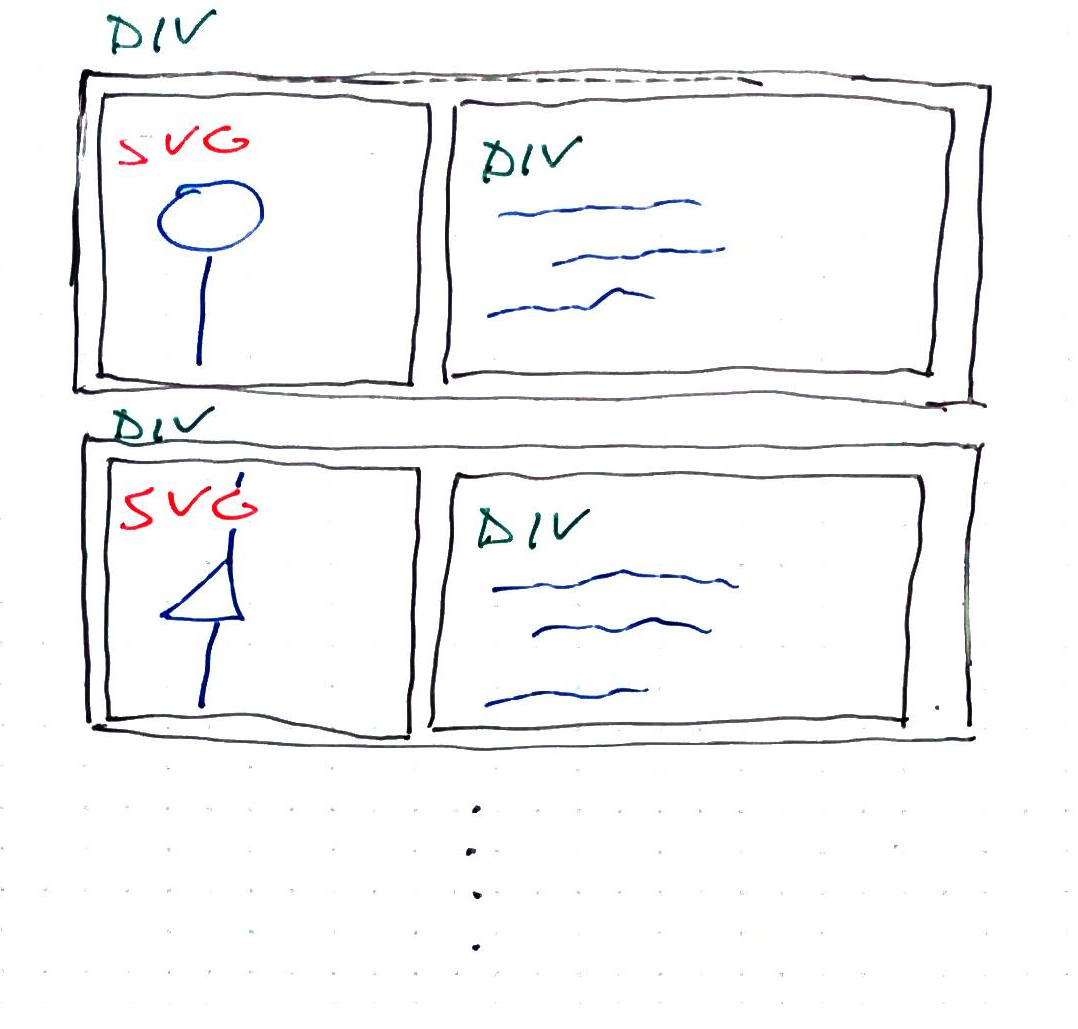 DIV
SVG
DIV
DIV
SVG
DIV